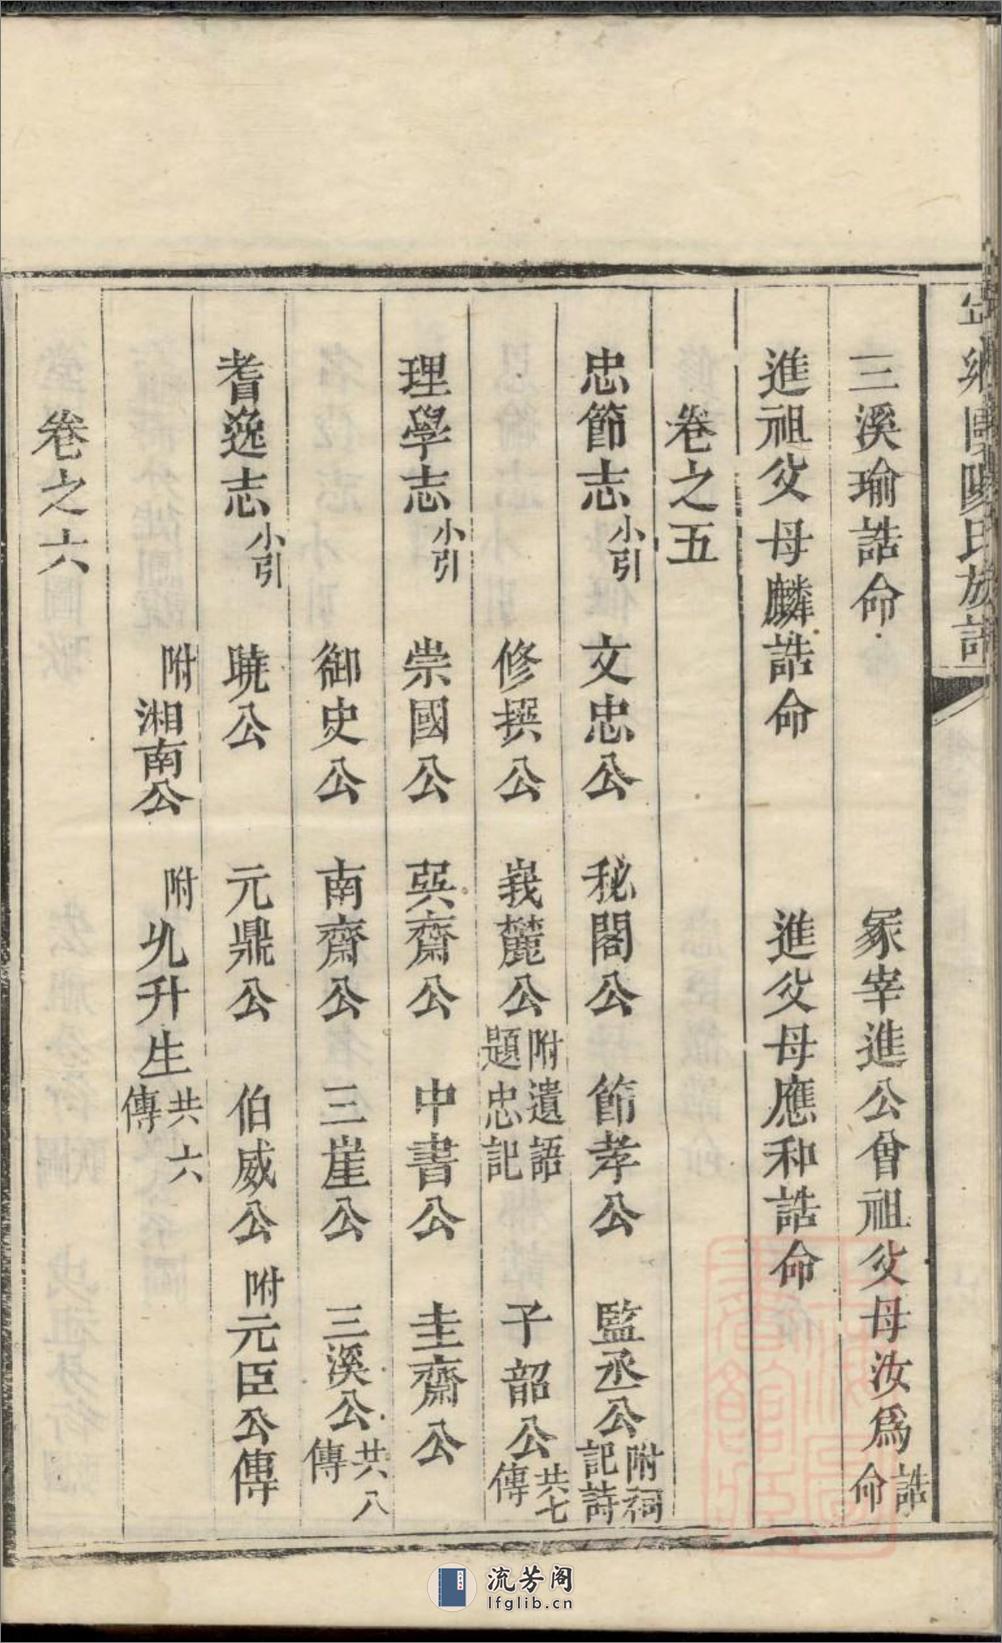 歐陽氏族譜
三溪瑜誥命 冢宰進公曾祖父母汝爲誥命
進祖父母麟誥命 進父母應和誥命
卷之五
忠節志小引 文忠公 秘閣公 節孝公 監丞公附祠記詩
修撰公 峩麓公附遺語題忠記 子韶公共七傳
理學志小引 崇國公 巽齋公 中書公 圭齋公
御史公 南齋公 三崖公 三溪公共八傳
耆逸志小引 曉公 元鼎公 伯威公 附元臣公傳
附湘南公 附允升生共六傳
卷之六
流芳阁
lfglib.cn